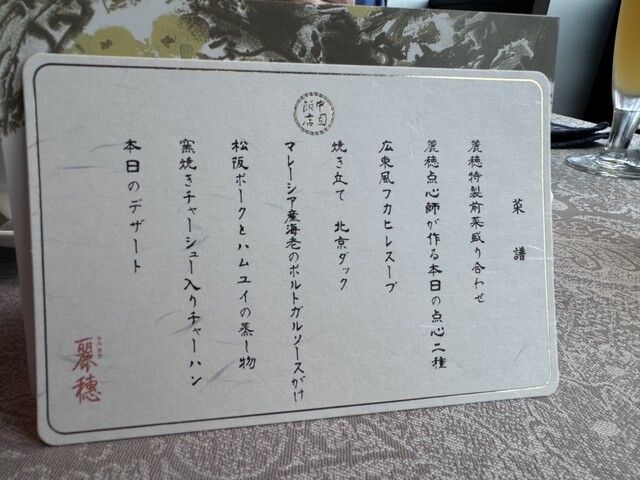 中国飯店
菜譜
麗穂特製前菜盛り合わせ
麗穂点心師が作る本日の点心二種
広東風フカヒレスープ
焼き立て 北京ダック
マレーシア産海老のポルトガルソースがけ
松阪ポークとハムユイの蒸し物
窯焼きチャーシュー入りチャーハン
本日のデザート
麗穂